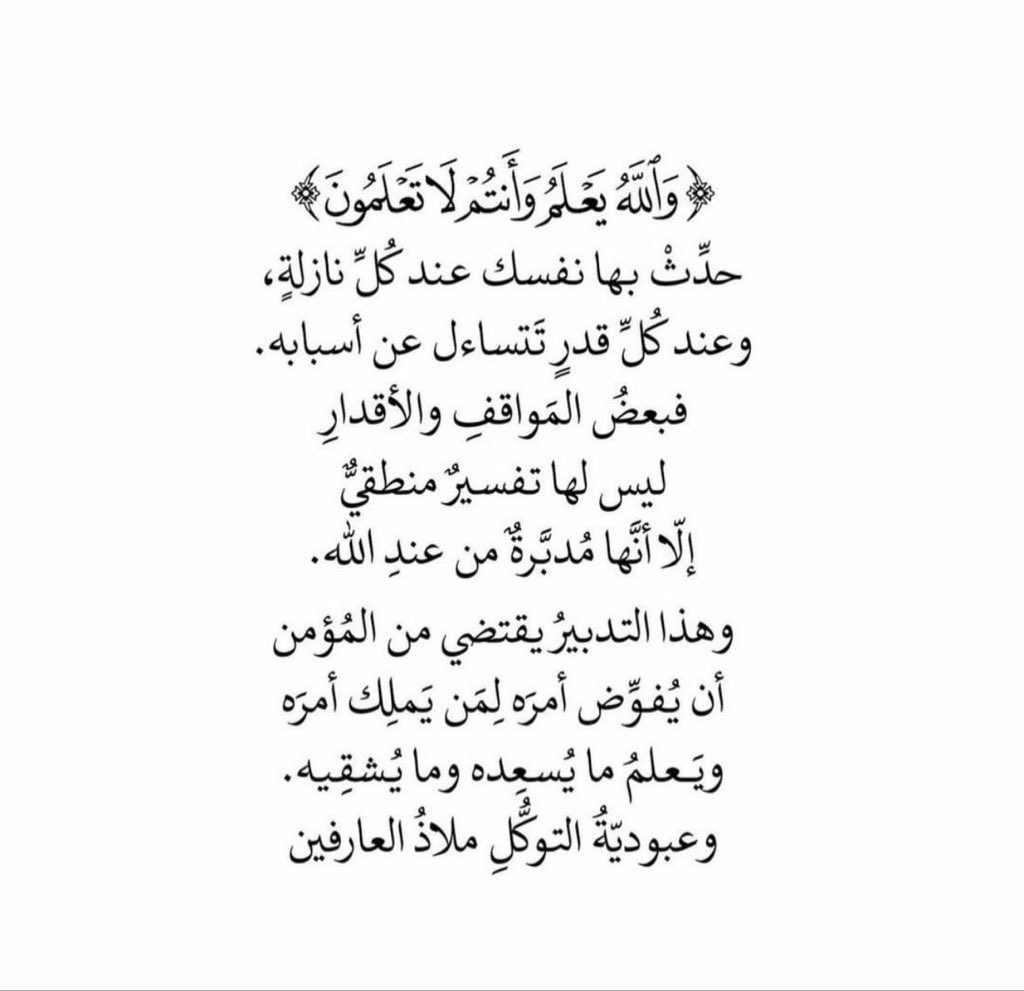 ﴿وَٱللَّهُ يَعۡلَمُ وَأَنتُمۡ لَا تَعۡلَمُونَ﴾
حدِّثْ بها نفسك عند كُلِّ نازلةٍ،
وعند كُلِّ قدرٍ تَتساءل عن أسبابه.
فبعضُ المَواقفِ والأقدارِ
ليس لها تفسيرٌ منطقيٌّ
إلّا أنَّها مُدبَّرةٌ من عندِ الله.
وهذا التدبيرُ يقتضي من المُؤمن
أن يُفوِّض أمرَه لِمَن يَملِك أمرَه
ويَـعلمُ ما يُسعِده وما يُشقِيه.
وعبوديّةُ التوكُّلِ ملاذُ العارفين